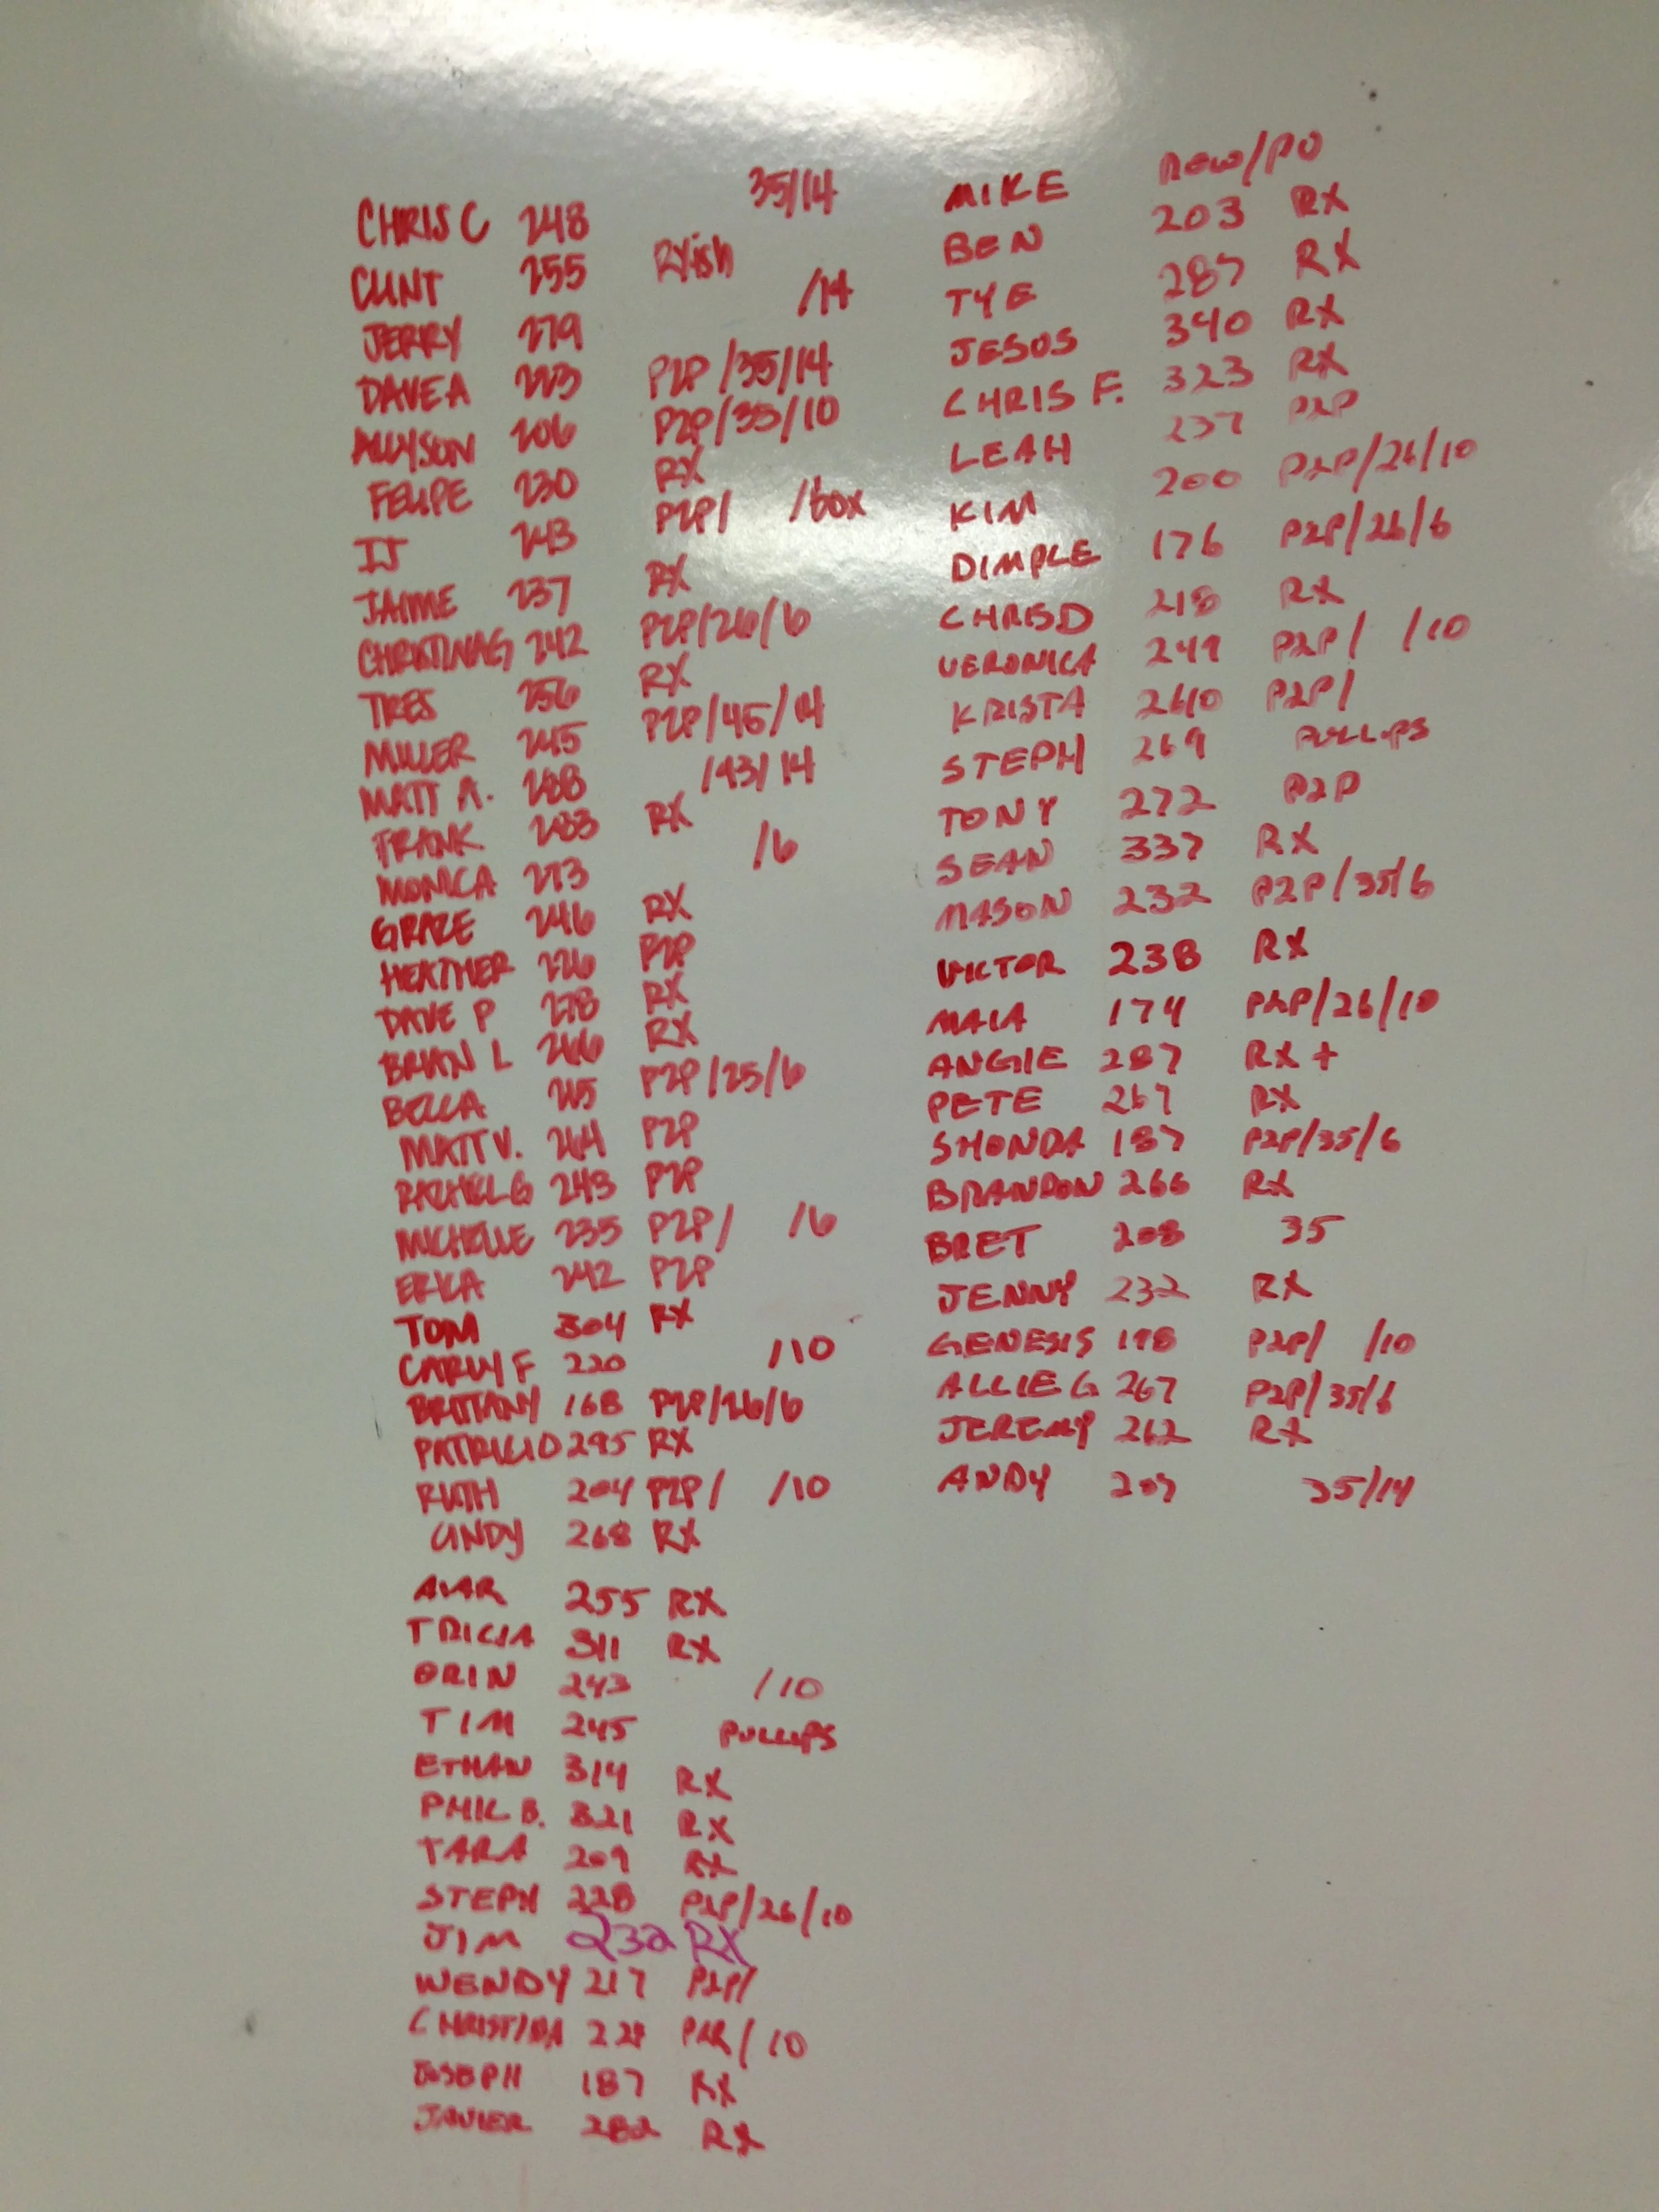 CHRIS C 248 35/14
CLINT 255 RXish
JERRY 279 /14
DAVE A 223 P2P/35/14
ALLYSON 206 P2P/35/10
FELIPE 230 RX
IJ 243 P2P/ /box
JAIME 237 RX
CHRISTINA G 242 P2P/26/6
TRES 256 RX
MILLER 245 P2P/45/14
MATT A. 288 /43/14
FRANK 283 RX
MONICA 273 /6
GRAZE 246 RX
HEATHER 226 P2P
DAVE P 278 RX
BRIAN L 266 RX
BECCA 215 P2P/25/6
MATT V. 264 P2P
RACHEL G 243 P2P
MICHELLE 235 P2P/ /6
ERICA 242 P2P
TOM 304 RX
CARLY F 220 /10
BRITTANY 168 P2P/26/6
PATRICIO 295 RX
RUTH 204 P2P/ /10
CINDY 268 RX
255 RX
TRICIA 311 RX
ORIN 243 /10
TIM 245 PULLUPS
ETHAN 314 RX
PHIL B. 321 RX
TARA 209 RX
STEPH 228 P2P/26/10
JIM 232 RX
WENDY 217 P2P/
CHRISTINA 228 /10
JOSEPH 187 RX
JAVIER 282 RX
MIKE NEW/PU
BEN 203 RX
TYE 287 RX
JESUS 340 RX
CHRIS F. 323 RX
LEAH 237 P2P
KIM 200 P2P/26/10
DIMPLE 176 P2P/26/6
CHRIS D 218 RX
VERONICA 249 P2P/ /10
KRISTA 260 P2P/
STEPH 269 PULLUPS
TONY 272 P2P
SEAN 337 RX
MASON 232 P2P/35/6
VICTOR 238 RX
MAIA 174 P2P/26/10
ANGIE 287 RX +
PETE 267 RX
SHONDA 187 P2P/35/6
BRANDON 266 RX
BRET 208 35
JENNY 232 RX
GENESIS 198 P2P/ /10
ALLIE G 267 P2P/35/6
JEREMY 262 RX
ANDY 207 35/14